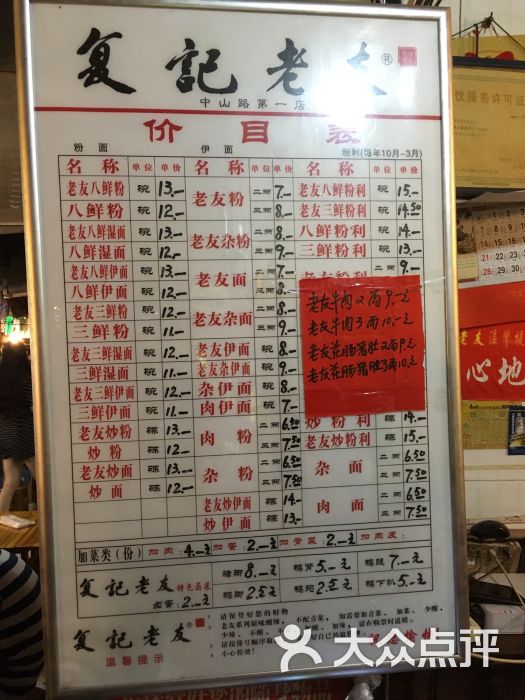 复記老友®
中山路第一店
价目表
粉面 伊面 粉利(每年10月~3月)
名称 单位 单价 名称 单位 单价 名称 单位 单价
老友八鲜粉 碗 13.-
八鲜粉 碗 12.-
老友八鲜湿面 碗 13.-
八鲜湿面 碗 12.-
老友八鲜伊面 碗 13.-
八鲜伊面 碗 12.-
老友三鲜粉 碗 12.-
三鲜粉 碗 11.-
老友三鲜湿面 碗 12.-
三鲜湿面 碗 11.-
老友三鲜伊面 碗 12.-
三鲜伊面 碗 11.-
老友炒粉 碟 13.-
炒粉 碟 12.-
老友炒面 碟 13.-
炒面 碟 12.-
老友粉 二两 7.-
三两 8.-
老友杂粉 二两 8.-
三两 9.-
老友面 二两 7.-
三两 8.-
老友杂面 二两 8.-
三两 9.-
老友伊面 碗 8.-
老友杂伊面 碗 9.-
杂伊面 碗 8.-
肉伊面 碗 7.-
肉粉 二两 6.50
三两 7.50
杂粉 二两 6.50
三两 7.50
老友炒伊面 碟 14.-
炒伊面 碟 13.-
老友八鲜粉利 碗 15.-
老友三鲜粉利 碗 14.50
八鲜粉利 碗 14.-
三鲜粉利 碗 13.-
老友粉利 碗 9.-
老友牛肉2两9.-元
老友牛肉3两10.-元
老友花肠猪肚2两9元
老友花肠猪肚3两10元
炒粉利 碟 14.-
老友炒粉利 碟 15.-
杂面 二两 6.50
三两 7.50
肉面 二两 6.50
三两 7.50
加菜类(份) 加肉 4.-元 加蛋 2.-元 加青菜 2.-元 加肉皮:
复記老友 特色卤菜 猪脚 8.-元 鸭肾 5.-元 鸭腿 7.-元
卤蛋: 2.-元 鸭脚 2.5元 鸭翅 2.5元 鸭下扒 5.-元
复記老友®
温馨提示
请保管好您的财物
小心扒窃!
饮服务许可证
心地
大众点评